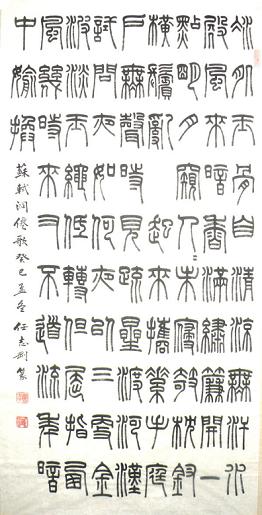 冰肌玉骨自清涼無汗水
殿風來暗香滿繡簾開一
點明月窺人〻未寢敧枕釵
橫鬢亂起來攜素手庭
戶無聲時見疏星渡河漢
試問夜如何夜已三更金
波淡玉繩低轉但屈指西
風幾時來又不道流年暗
中偷換
蘇軾洞僊歌癸巳孟冬任志剛篆